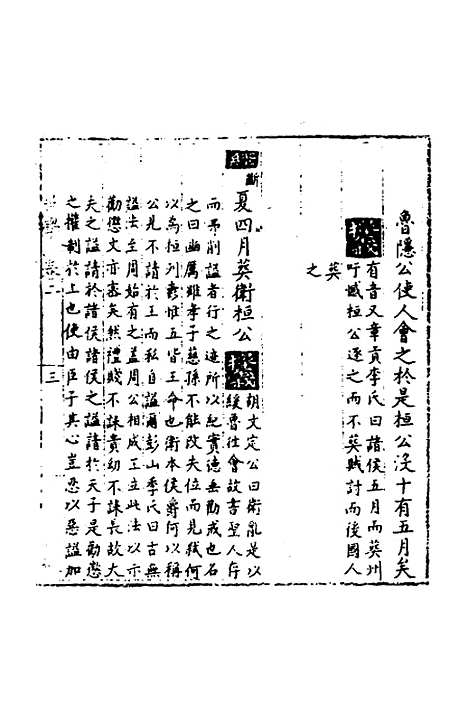 魯隱公使人會之於是桓公没十有五月矣
有音又章貢李氏曰諸侯五月而葬州
吁弑桓公逐之而不葬賊討而後國人
葬
之
斷
夏四月葬衛桓公
胡文定公曰衛亂是以
緩魯往會故書聖人存
而弗削謚者行之迹所以紀實德垂勸戒也名
之曰幽厲雖孝子慈孫不能改失位而見弑何
以為桓列爵惟五皆王命也衛本侯爵何以稱
公見不請於王而私自謚爾彭山季氏曰古無
謚法至周始有之蓋周公相成王立此法以示
勸懲文亦寡矣然禮賤不誄貴幼不誄長故大
夫之謚請於諸侯諸侯之謚請於天子是勸懲
之權制於上也使由臣子其心豈忍以惡謚加
卷二
三